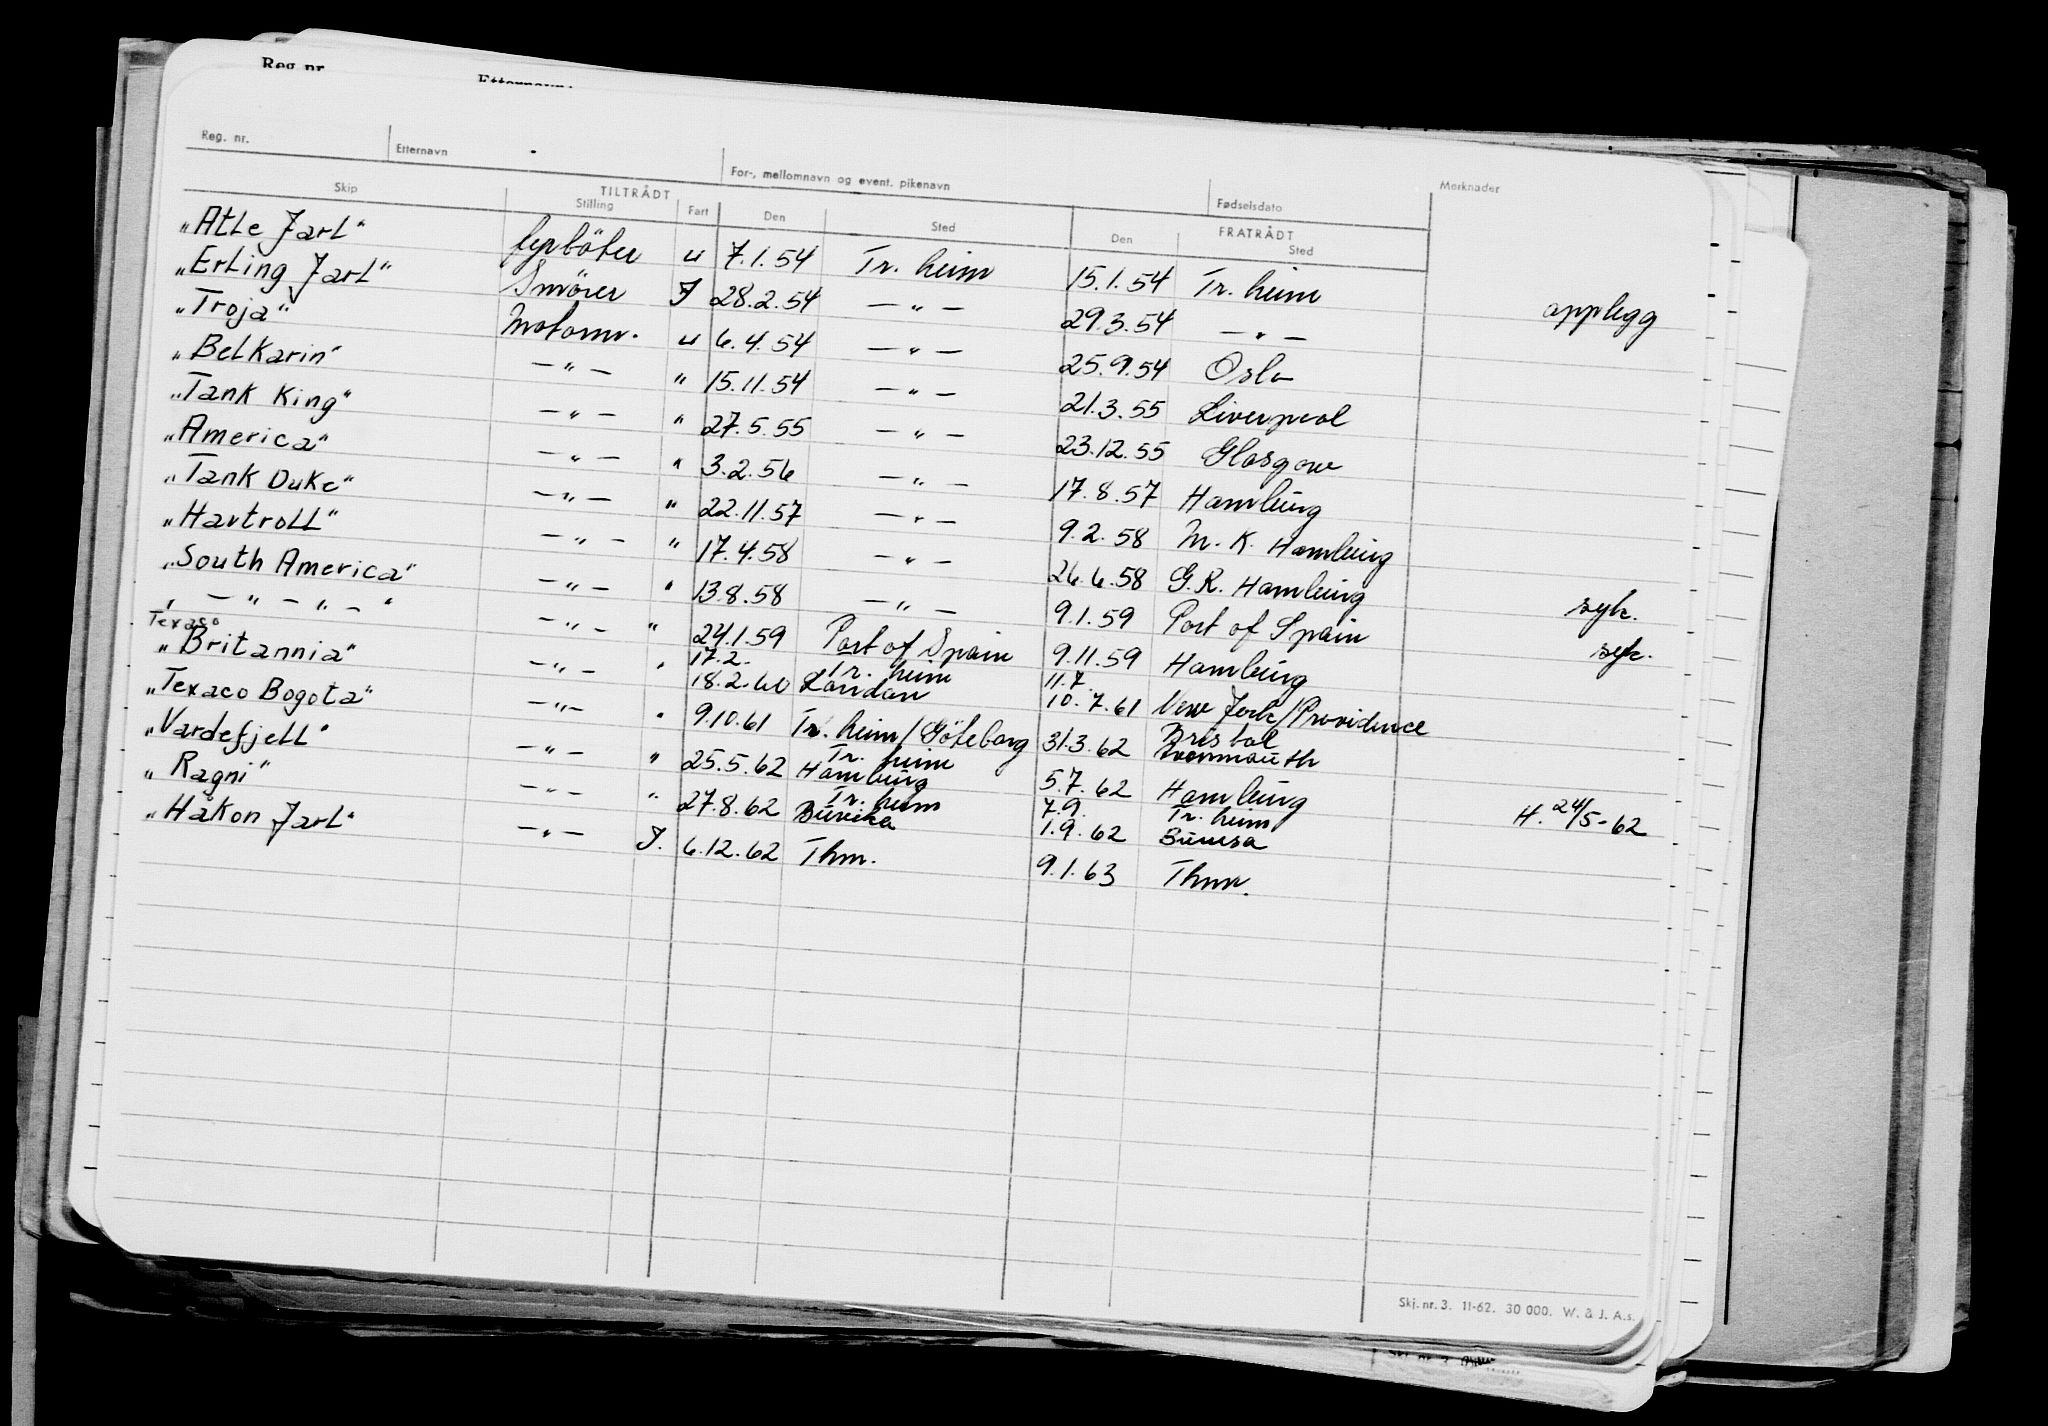 Reg. nr.
Reg. nr. Etternavn For-, mellomnavn og event. pikenavn Fødselsdato Merknader
Skip TILTRÅDT FRATRÅDT
Stilling Fart Den Sted Den Sted
"Atle Jarl" fyrböter u 7.1.54 Tr. heim 15.1.54 Tr. heim
"Erling Jarl" Smörer J 28.2.54 — " — 29.3.54 — " — opplegg
"Troja" Motorm. u 6.4.54 — " — 25.9.54 Oslo
"Belkarin" — " — " 15.11.54 — " — 21.3.55 Liverpool
"Tank King" — " — " 27.5.55 — " — 23.12.55 Glasgow
"America" — " — " 3.2.56 — " — 17.8.57 Hamburg
"Tank Duke" — " — " 22.11.57 — " — 9.2.58 M.K. Hamburg
"Havtroll" — " — " 17.4.58 — " — 26.6.58 G.R. Hamburg
"South America" — " — " 13.8.58 — " — 9.1.59 Port of Spain syk.
" — " — " — " — " — " 24.1.59 Port of Spain 9.11.59 Hamburg syk.
Texaco 17.2. Tr. heim 11.7.
"Britannia" — " — " 18.2.60 London 10.7.61 New York/Providence
"Texaco Bogota" — " — " 9.10.61 Tr. heim/Göteborg 31.3.62 Bristol Avonmouth
"Vardefjell" — " — " 25.5.62 Tr. heim Hamburg 5.7.62 Hamburg H. 24/5-62
7.9. Tr. heim
"Ragni" — " — " 27.8.62 Tr. heim 1.9.62
"Håkon Jarl" — " — J. 6.12.62 Thm. 9.1.63 Thm.
Skj. nr. 3. 11-62. 30 000. W. & J. A.s.